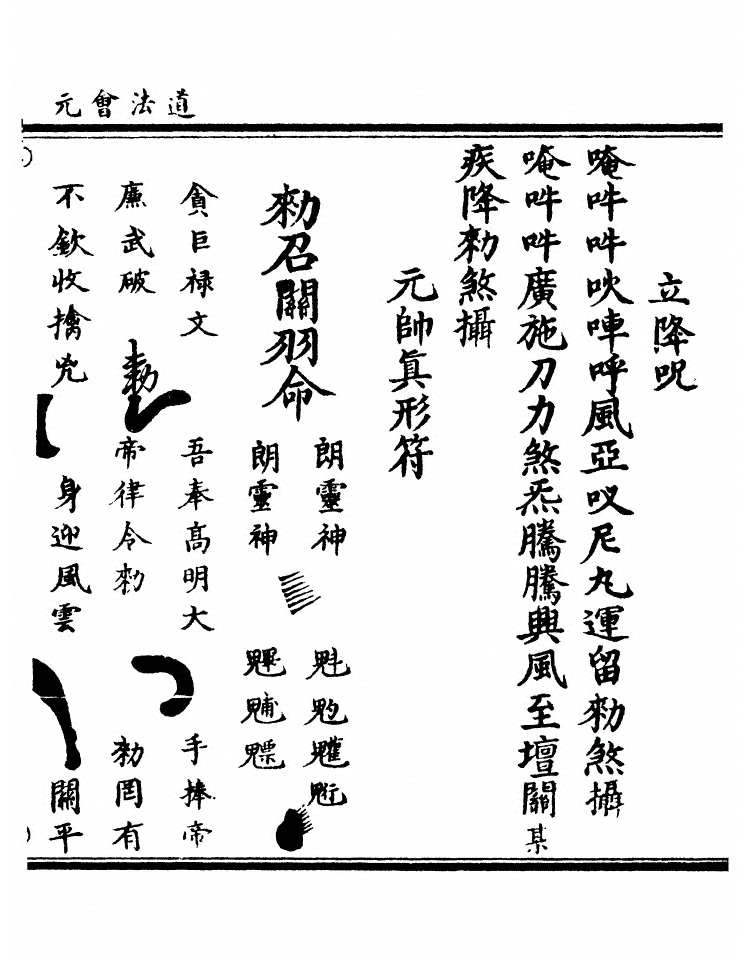 元會法道
立降呪
唵吽吽吙㖕呼風亞㕲尼丸運留勑煞攝
唵吽吽廣施刀力煞炁騰騰興風至壇關某
疾降勑煞攝
元帥眞形符
勑召關羽命
朗靈神
朗靈神
魁䰢魓魒
貪巨禄文
廉武破
不欽收擒兇
勑
吾奉高明大
帝律令勑
身迎風雲
手捧帝
勑罔有
關平